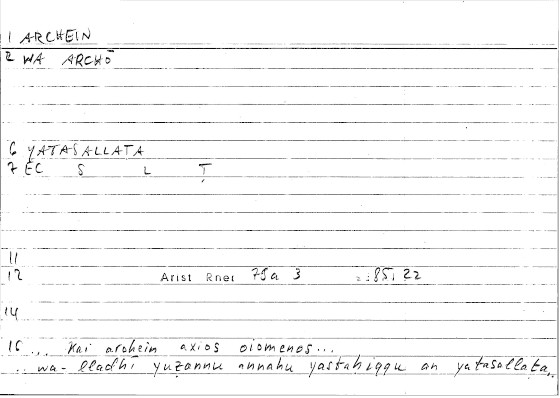 1 ARCHEIN
2 WA ARCHŌ
6 YATASALLATA
7 EC S L Ṭ
11
12 Arist Rhet 79a 3 = :85, 22
14
15 ... kai archein axios oiomenos...
... wa-lladhī yuẓannu annahu yastaḥiqqu an yatasallaṭa..